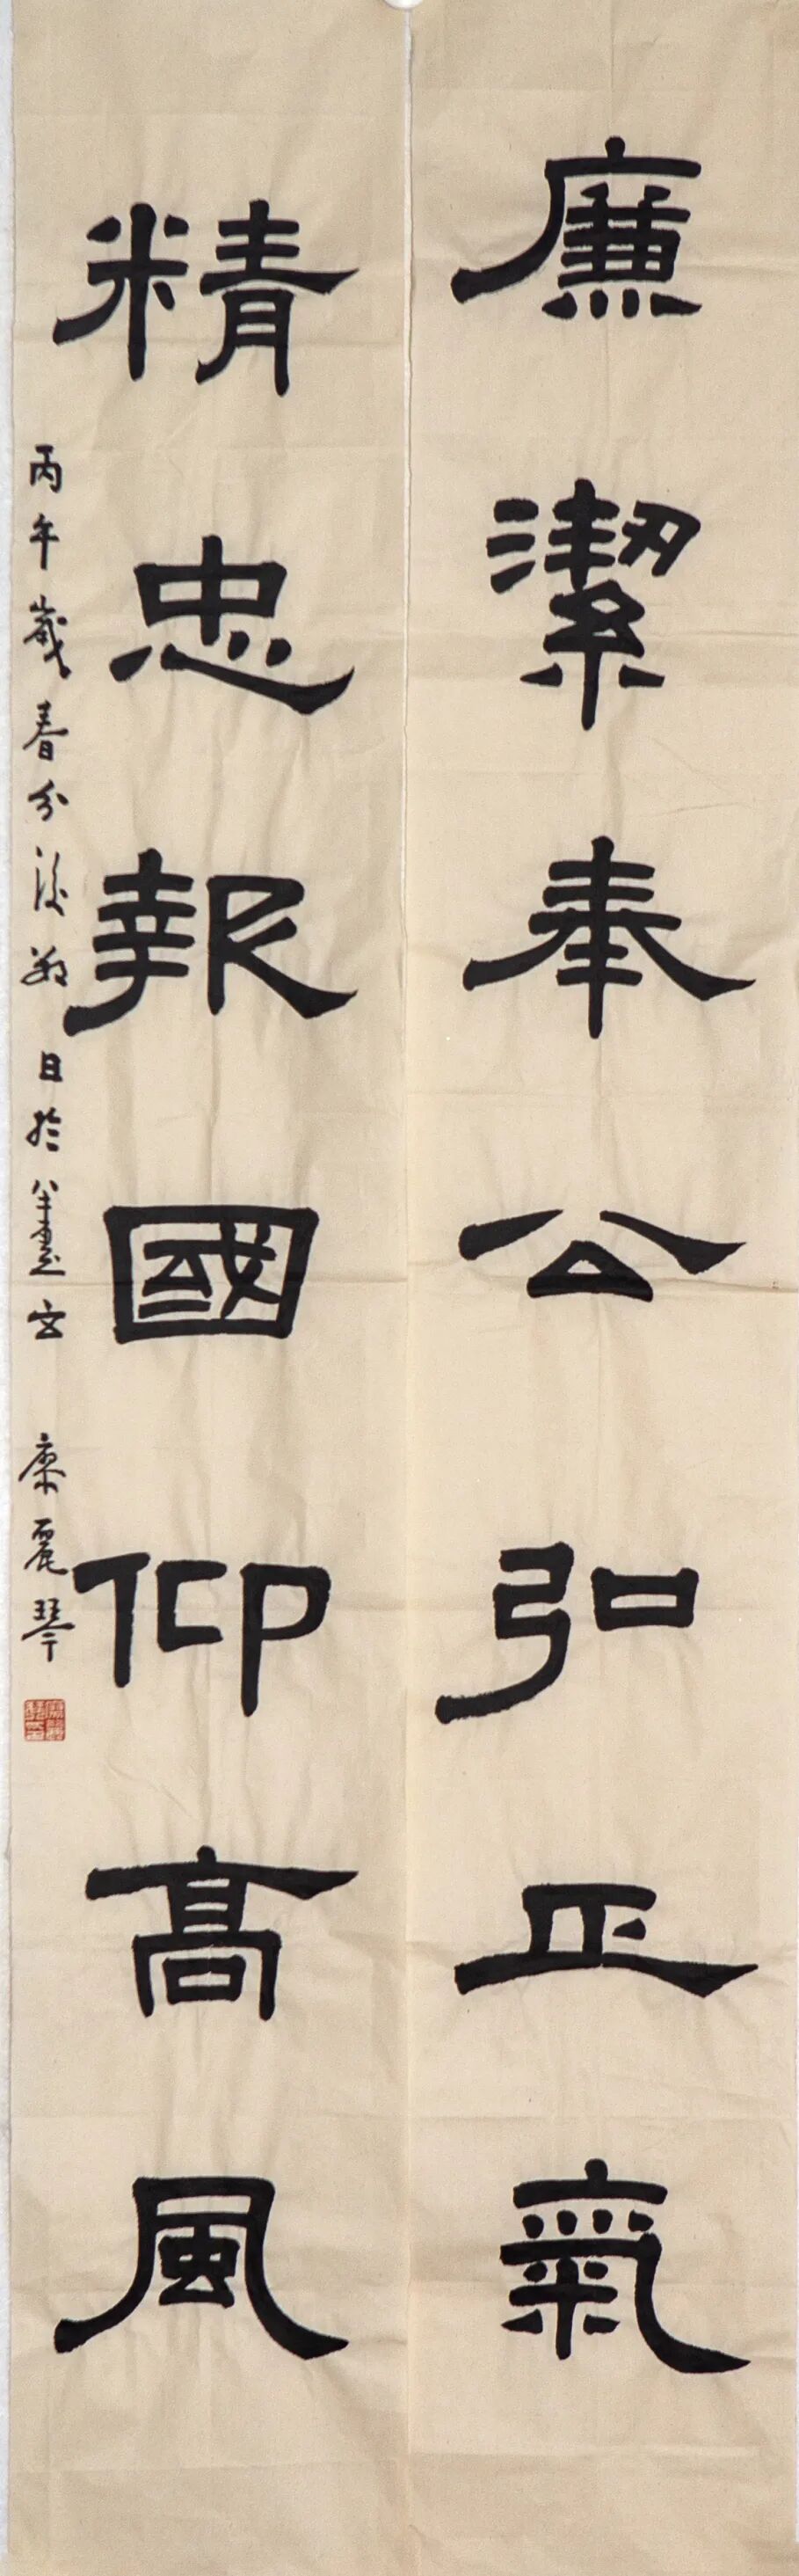 廉潔奉公弘正氣
精忠報國仰高風
丙午歲春分後日於康麗琴